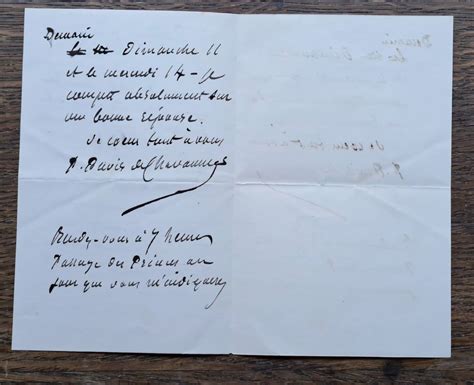 Demain
Dimanche 11
et le mercredi 14 - Je
compte absolument sur
une bonne réponse.
de coeur tout à vous
P. Puvis de Chavannes
Rendez-vous à 7 heures
Passage des Princes au
jour que vous m'indiquerez